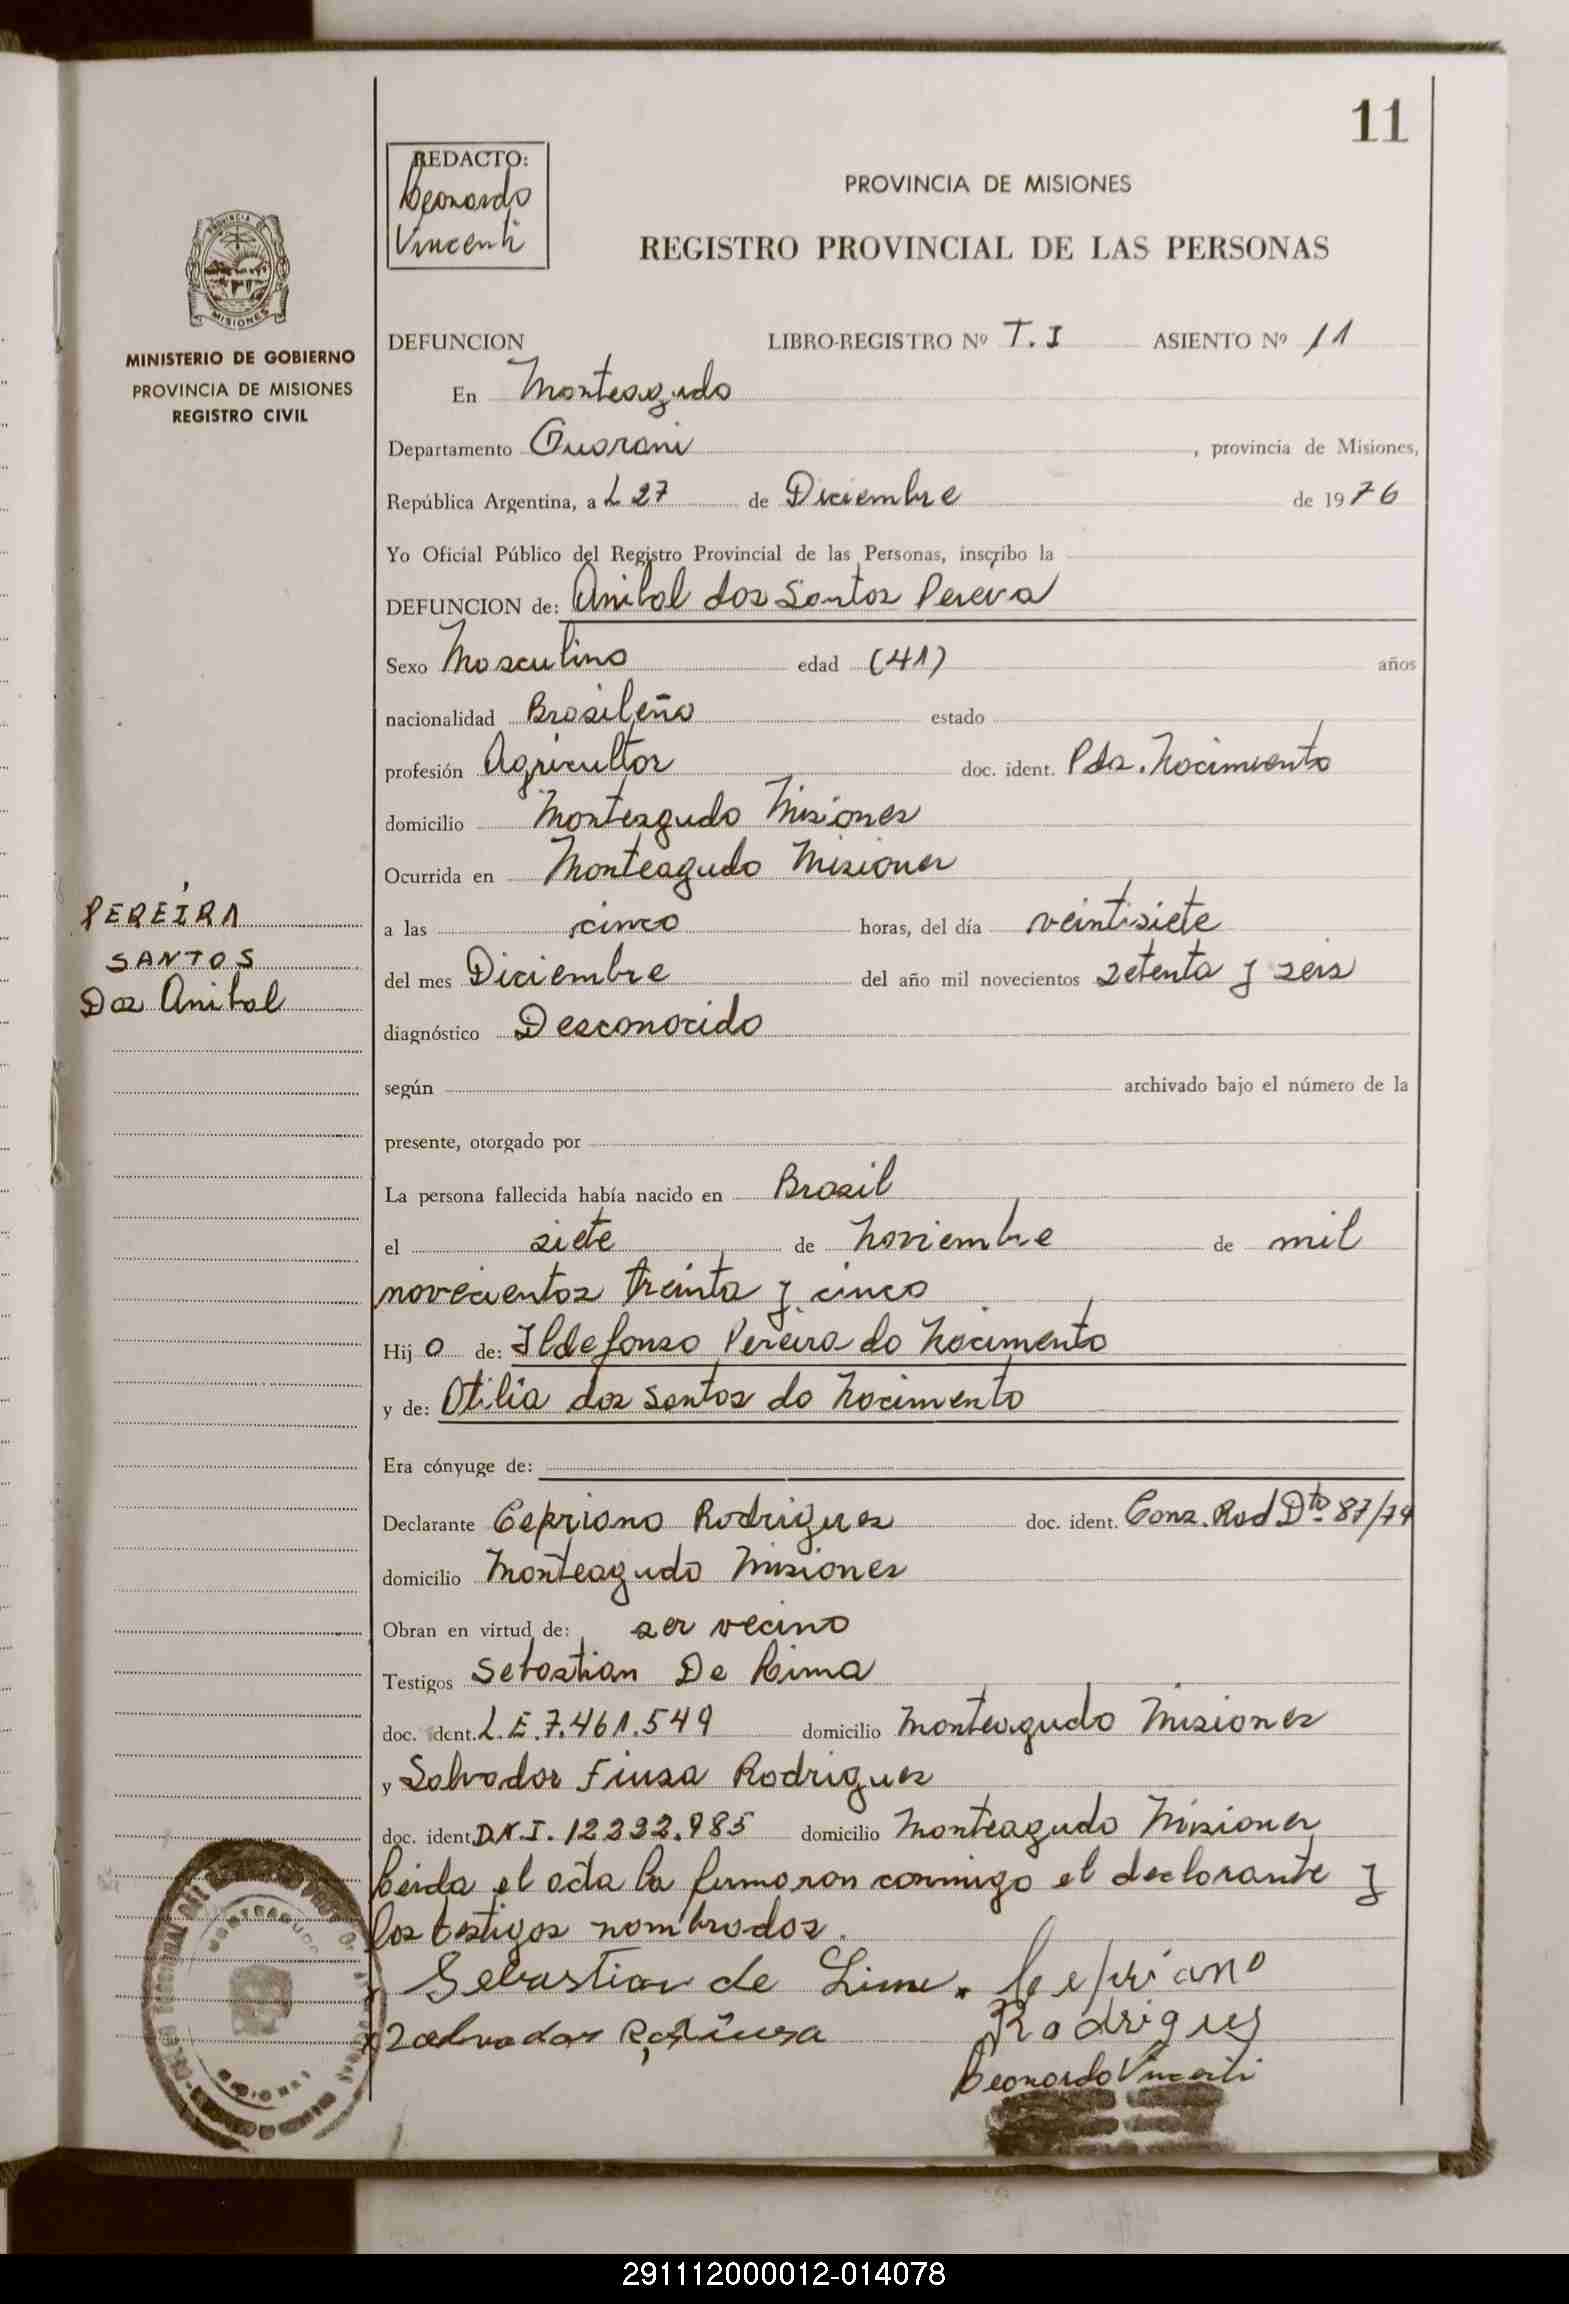 11
REDACTO:
Leonardo
Vincenti
PROVINCIA DE MISIONES
REGISTRO PROVINCIAL DE LAS PERSONAS
MISIONES
MINISTERIO DE GOBIERNO
PROVINCIA DE MISIONES
REGISTRO CIVIL
DEFUNCION LIBRO-REGISTRO Nº T.I ASIENTO Nº 11
En Monteagudo
Departamento Guarani, provincia de Misiones,
República Argentina, a L 27 de Diciembre de 1976
Yo Oficial Público del Registro Provincial de las Personas, inscribo la
DEFUNCION de: Anibal dos Santos Pereira
Sexo Masculino edad (41) años
nacionalidad Brasileño estado
profesión Agricultor doc. ident. Pda. Nacimiento
domicilio Monteagudo Misiones
Ocurrida en Monteagudo Misiones
PEREIRA
SANTOS
Dos Anibal
a las cinco horas, del día veintisiete
del mes Diciembre del año mil novecientos setenta y seis
diagnóstico Desconocido
según archivado bajo el número de la
presente, otorgado por
La persona fallecida había nacido en Brasil
el siete de Noviembre de mil
novecientos treinta y cinco
Hij o de: Ildefonso Pereira do Nacimento
y de: Otilia dos Santos do Nacimento
Era cónyuge de:
Declarante Cepriano Rodrigues doc. ident. Cons. Rad Dto 87/74
domicilio Monteagudo Misiones
Obran en virtud de: ser vecino
Testigos Sebastian De Lima
doc. ident. L.E. 7.461.549 domicilio Monteagudo Misiones
y Salvador Fiusa Rodrigues
doc. ident D.N.I. 12232.985 domicilio Monteagudo Misiones
Leida el acta la firmaron conmigo el declarante y
los testigos nombrados.
Sebastian de Lima. Cepriano
Rodrigues
Salvador R. Fiusa
Leonardo Vincenti
291112000012-014078